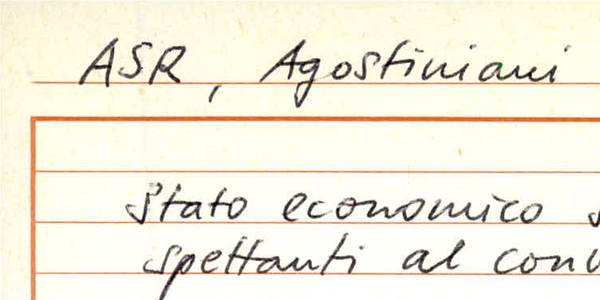 ASR, Agostiniani
Stato economico s
spettanti al conv